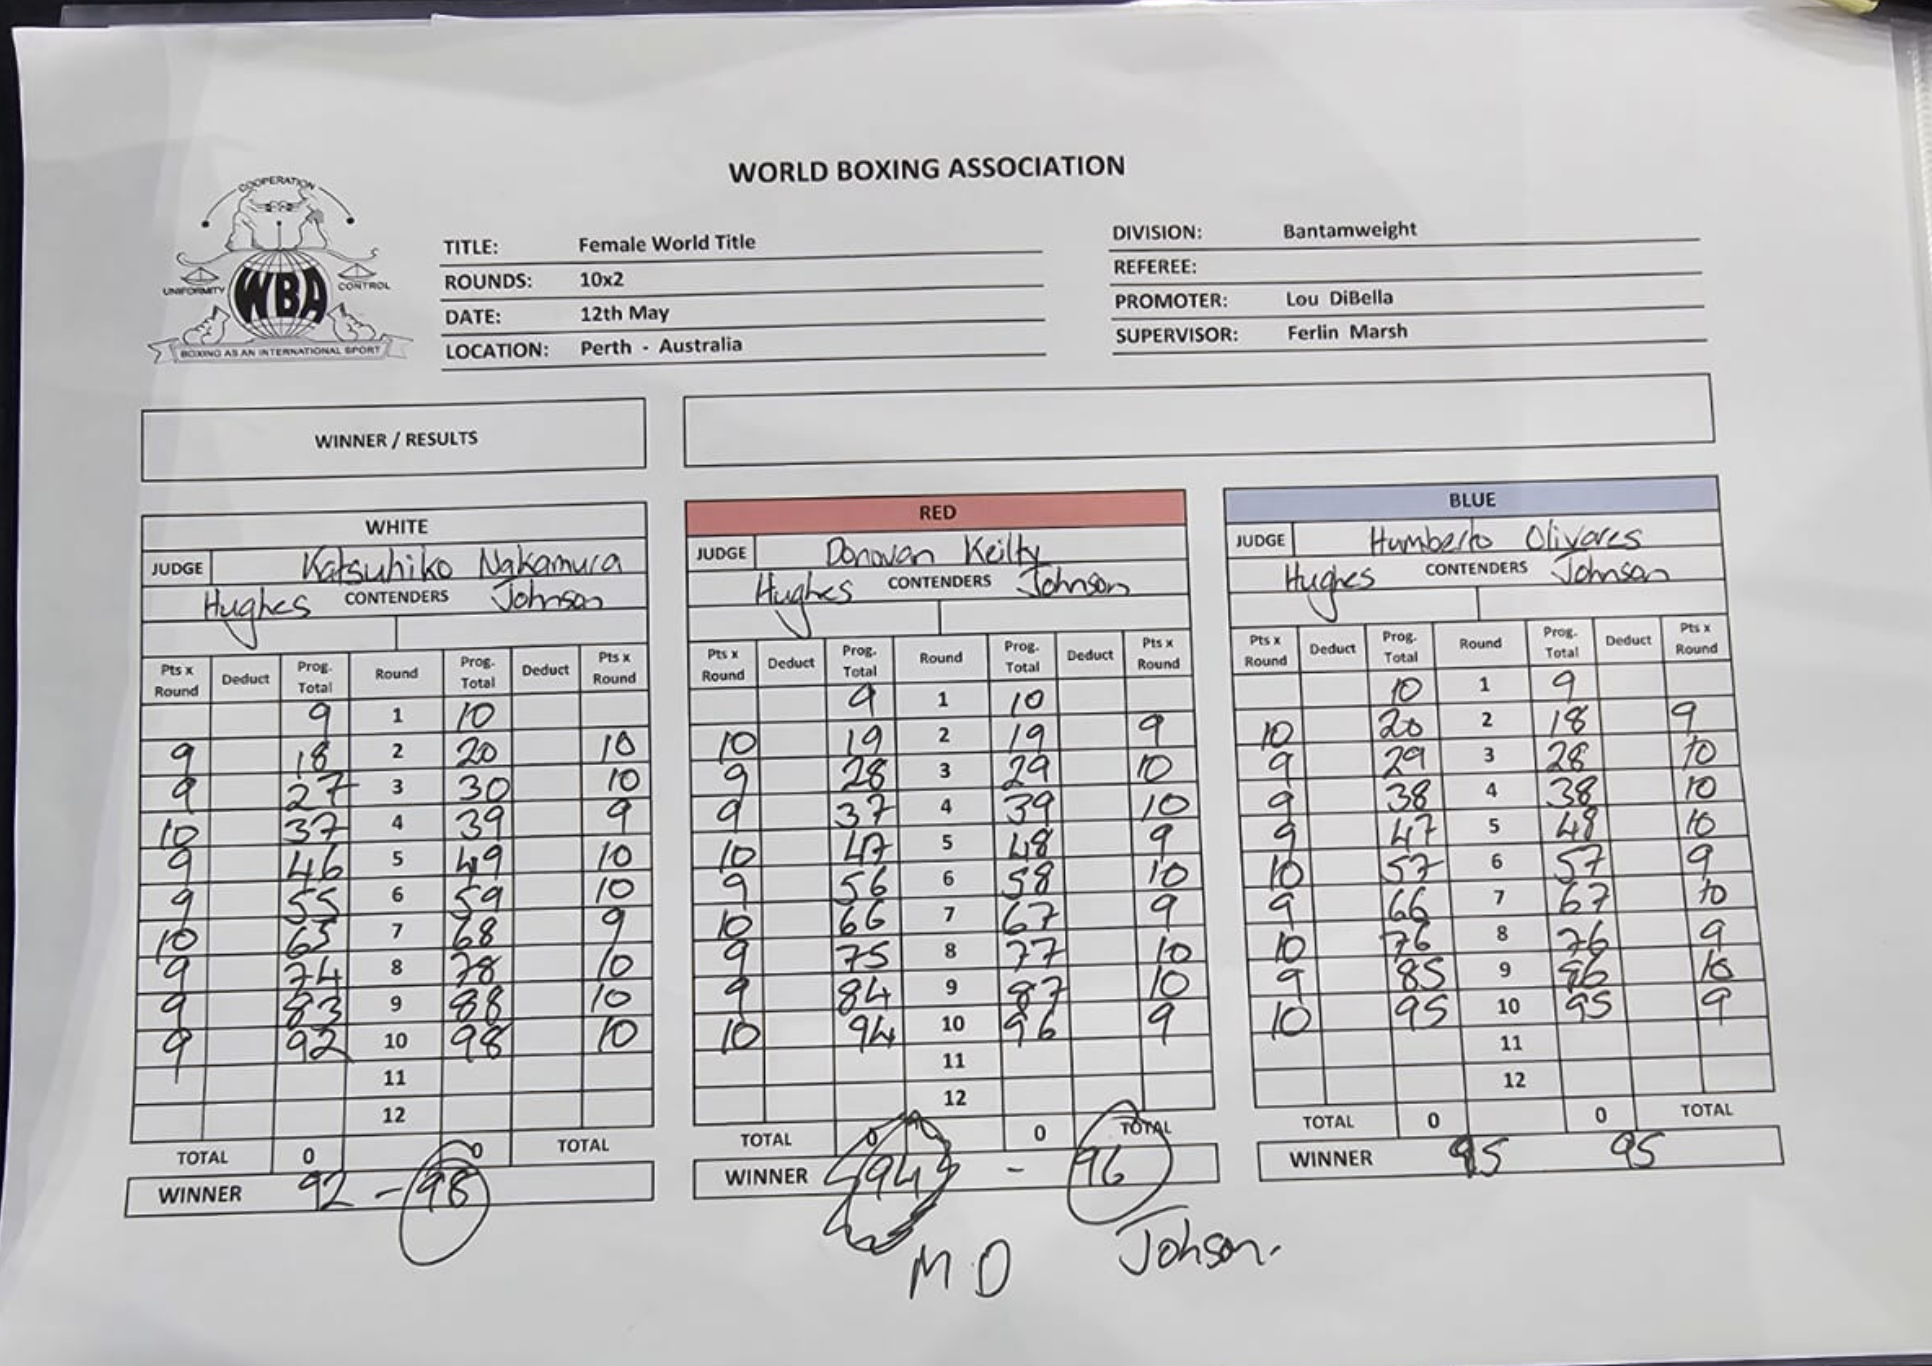 WORLD BOXING ASSOCIATION
COOPERATION
UNIFORMITY WBA CONTROL
BOXING AS AN INTERNATIONAL SPORT
TITLE: Female World Title
ROUNDS: 10x2
DATE: 12th May
LOCATION: Perth - Australia
DIVISION: Bantamweight
REFEREE:
PROMOTER: Lou DiBella
SUPERVISOR: Ferlin Marsh
WINNER / RESULTS
WHITE
JUDGE Katsuhiko Nakamura
Hughes CONTENDERS Johnson
Pts x Round Deduct Prog. Total Round Prog. Total Deduct Pts x Round
9 1 10
9 18 2 20 10
9 27 3 30 10
10 37 4 39 9
9 46 5 49 10
9 55 6 59 10
10 65 7 68 9
9 74 8 78 10
9 83 9 88 10
9 92 10 98 10
11
12
TOTAL 0 0 TOTAL
WINNER 92 - 98
RED
JUDGE Donovan Keilty
Hughes CONTENDERS Johnson
Pts x Round Deduct Prog. Total Round Prog. Total Deduct Pts x Round
9 1 10
10 19 2 19 9
9 28 3 29 10
9 37 4 39 10
10 47 5 48 9
9 56 6 58 10
10 66 7 67 9
9 75 8 77 10
9 84 9 87 10
10 94 10 96 9
11
12
TOTAL 0 0 TOTAL
WINNER 94 - 96
M.D Johson.
BLUE
JUDGE Humberto Olivares
Hughes CONTENDERS Johnson
Pts x Round Deduct Prog. Total Round Prog. Total Deduct Pts x Round
10 1 9
10 20 2 18 9
9 29 3 28 10
9 38 4 38 10
9 47 5 48 10
10 57 6 57 9
9 66 7 67 10
10 76 8 76 9
9 85 9 86 10
10 95 10 95 9
11
12
TOTAL 0 0 TOTAL
WINNER 95 95